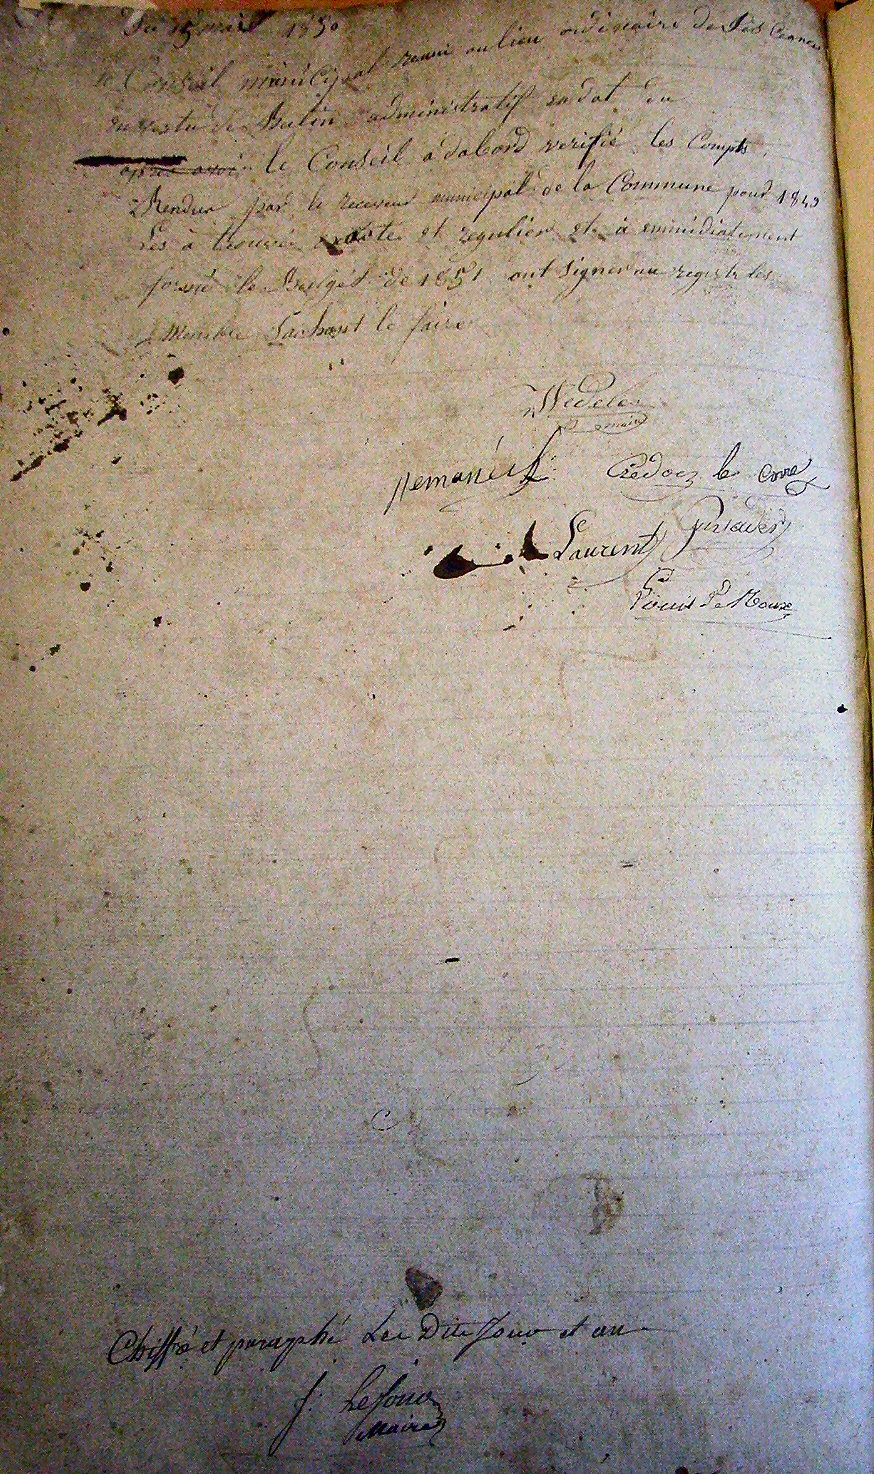 Du 15 mai 1850
le Conseil municipal reuni au lieu ordinaire de Ses Ceances
en vertu de Buletin administratif en dat du
après avoir le Conseil à dabord verifié les Compts
Rendus par le receveur municipal de la Commune pour 1849
Les à trouvé et regulier et à emmédiatement
formé le Budget de 1851 ont Signer au registr les
Membre Sachant le faire
maire
Crédoz le Corre
Laurent
Louis Le Roux
Chiffré et paraphé Les Dits Jour et an
f: Le Jour
Maire